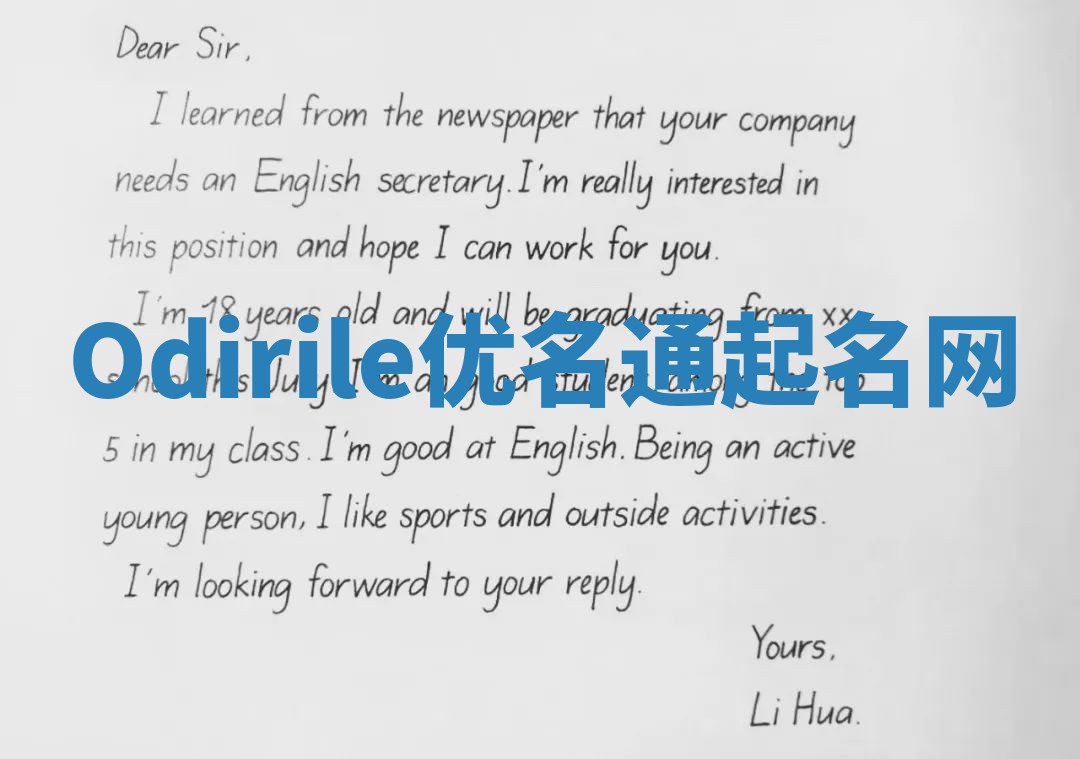 Dear Sir,
I learned from the newspaper that your company
needs an English secretary. I'm really interested in
this position and hope I can work for you.
I'm 18 years old and will be graduating from xx
Odirile优名通起名网
school this July. I'm a good student among the top
5 in my class. I'm good at English. Being an active
young person, I like sports and outside activities.
I'm looking forward to your reply.
Yours,
Li Hua.